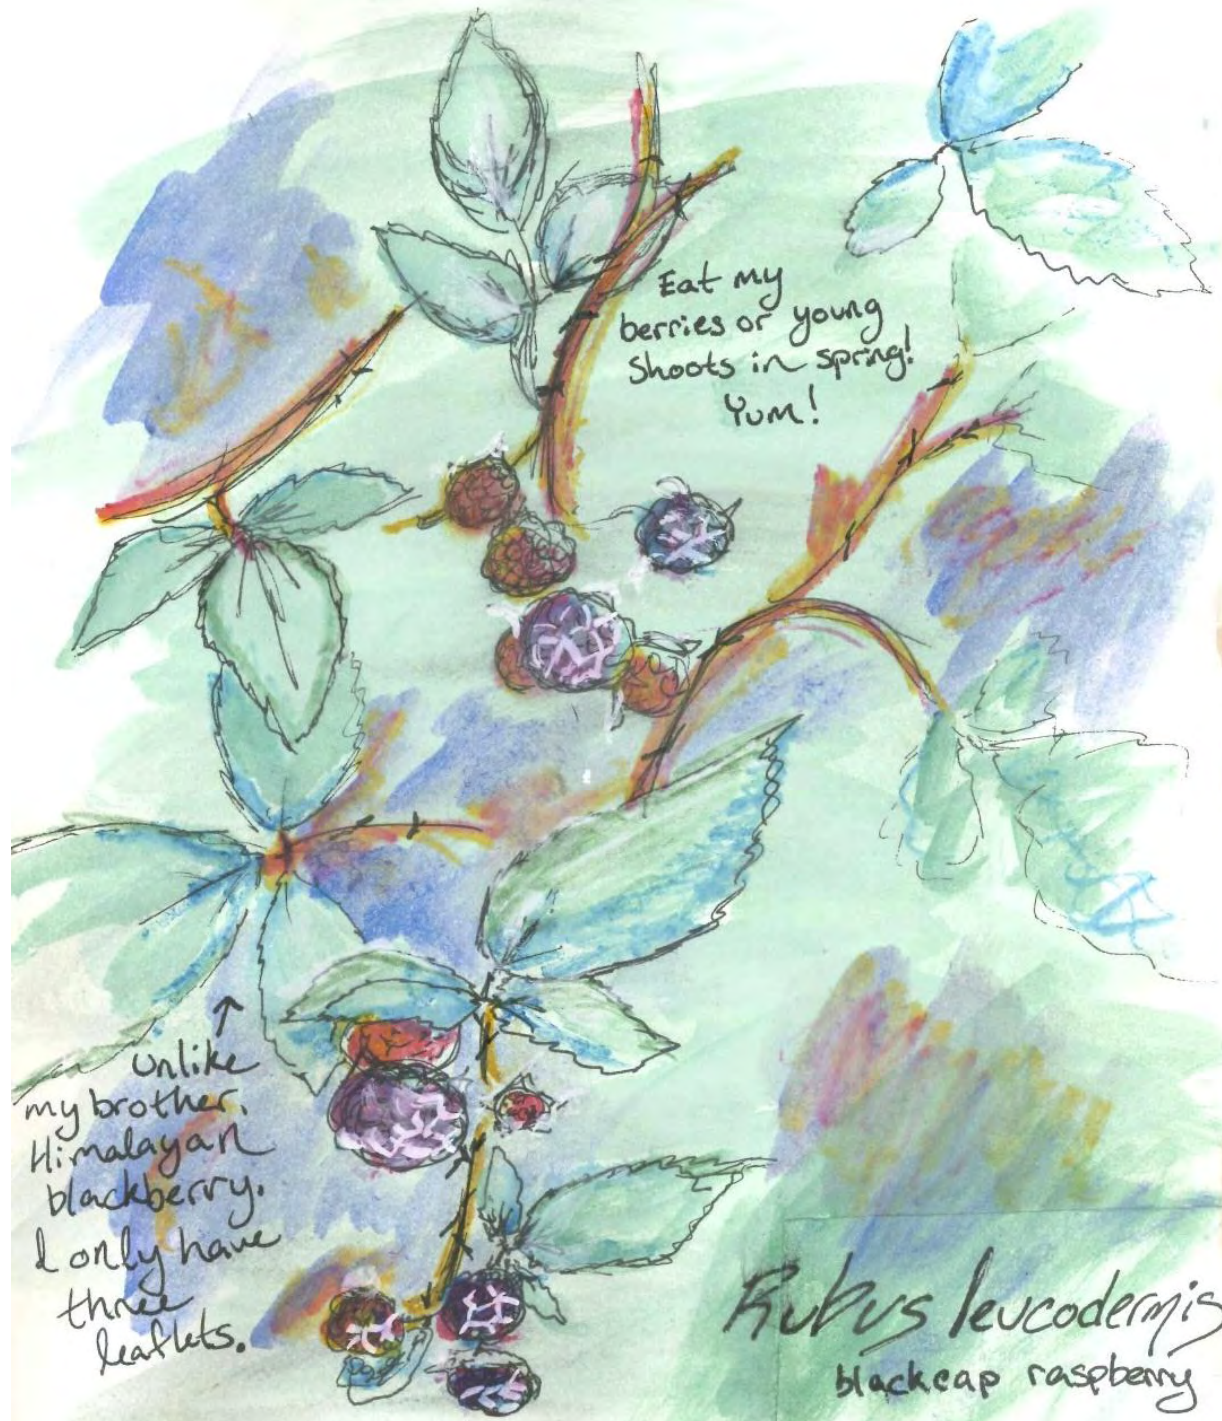 Eat my
berries or young
shoots in spring!
Yum!
↑
Unlike
my brother.
Himalayan
blackberry.
I only have
three
leaflets.
Rubus leucodermis
blackcap raspberry